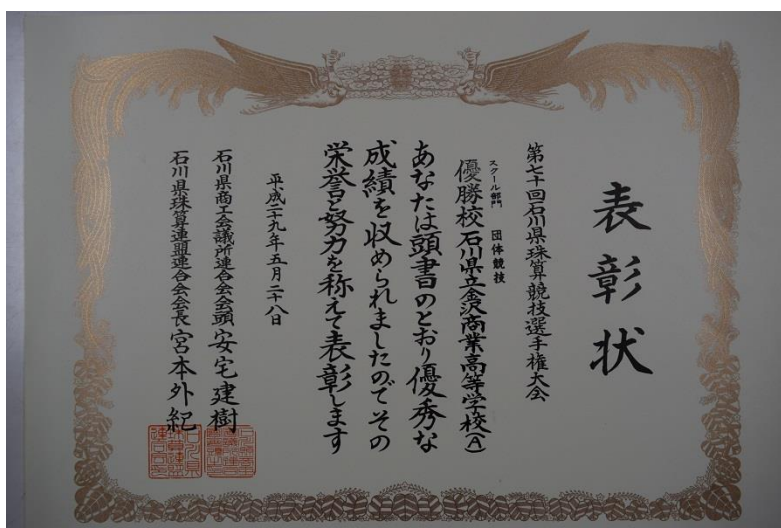 表彰状
第七十回石川県珠算競技選手権大会
スクール部門 団体競技
優勝校 石川県立金沢商業高等学校(A)
あなたは頭書のとおり優秀な
成績を収められましたのでその
栄誉と努力を称えて表彰します
平成二十九年五月二十八日
石川県商工会議所連合会会頭 安宅建樹
石川県珠算連盟連合会会長 宮本外紀